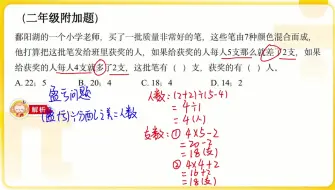 (二年级附加题)
鄱阳湖的一个小学老师，买了一批质量非常好的笔，这些笔由7种颜色混合而成，
他打算把这批笔发给班里获奖的人，如果给获奖的人每人5支那么就差了2支，如果
给获奖的人每人4支就多了2支，这批笔有（ ）支，获奖的有（ ）人。
A. 22；5 B. 20；4 C. 18；4 D. 14；2
解析
盈亏问题
(盈+亏)÷分配之差=人数
人数：(2+2)÷(5-4)
=4÷1
=4(人)
支数：① 4×5-2
=20-2
=18(支)
② 4×4+2
=16+2
=18(支)